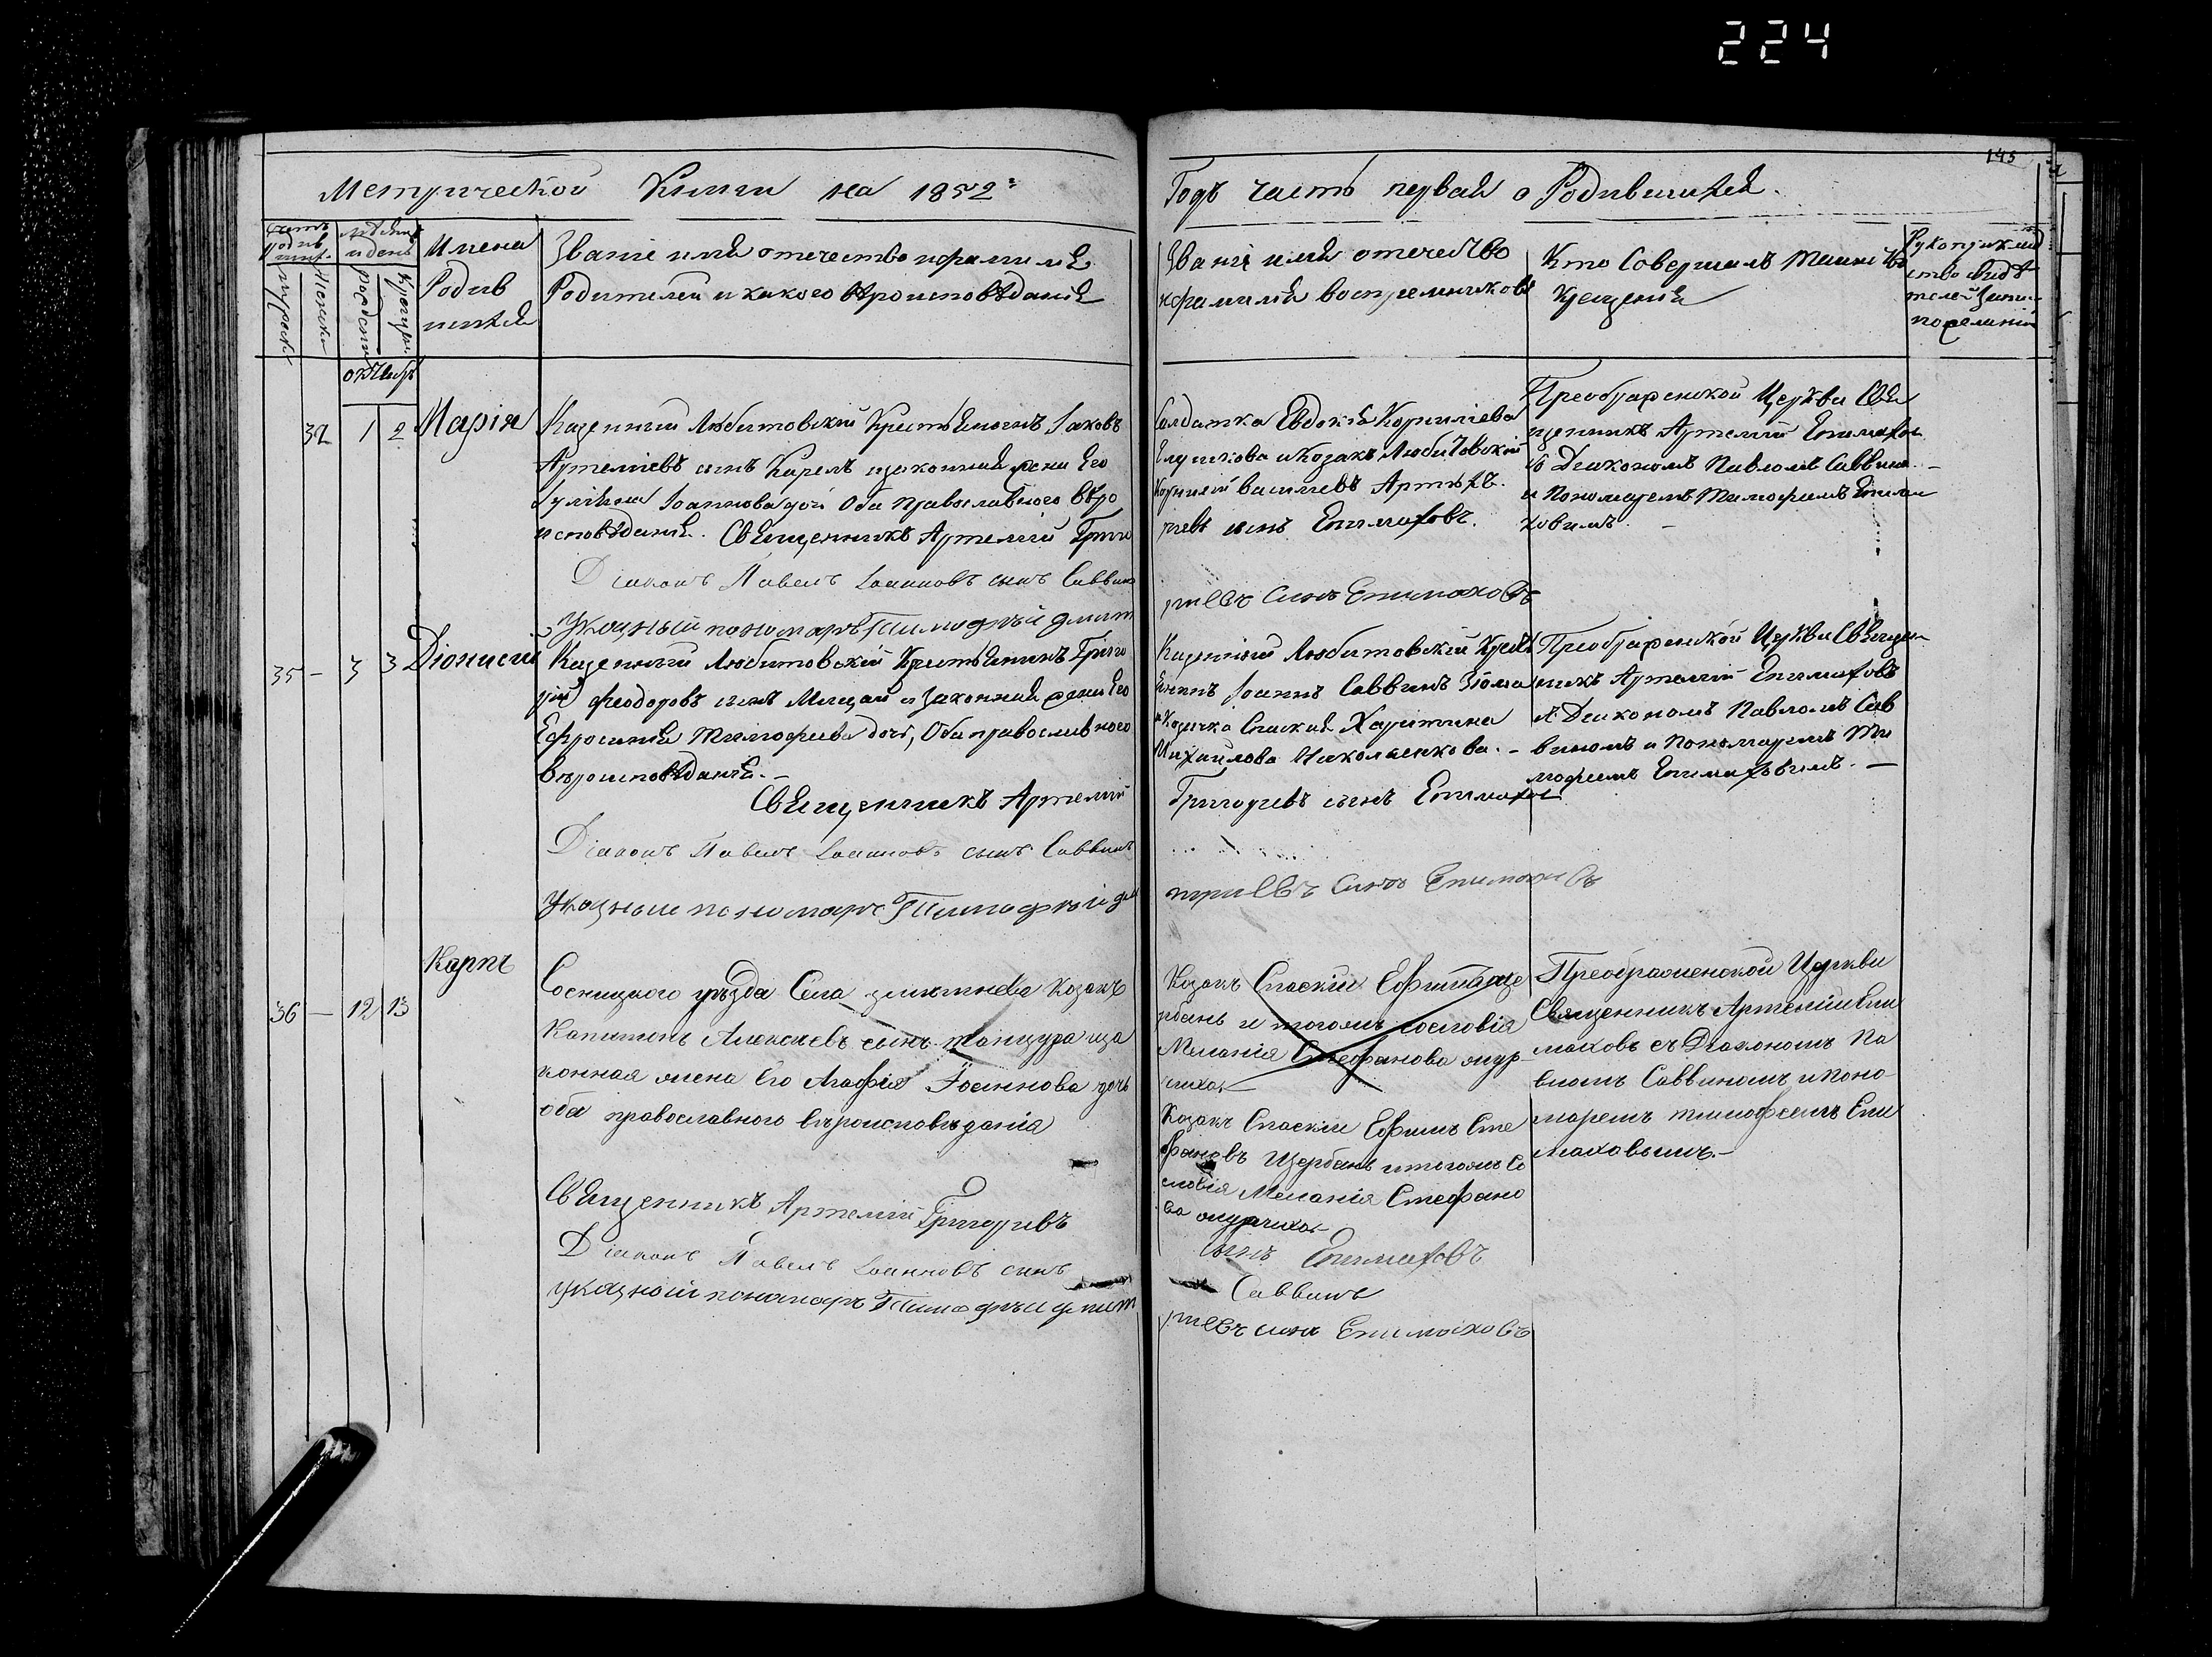 224
145
Метрической Книги на 1852:
Годъ часть первая о Родившихся.
Имена
Родив
шихся
Званіе имя отечество и фамилія
Родителей и какого вѣроисповѣданія
Званіе имя отечество
и фамилія воспріемниковъ
Кто Совершалъ Таинство
Крещенія
Рукоприклад
ство свидѣ
телей Записи
по желанію
октябрь
32 1 2 Марія
Казенный Любитовскій Крестьянинъ Іаковъ
Артеміевъ сынъ Карелъ изаконная жена Его
Іоаннова дочь Оба православного вѣро
исповѣданія. Священникъ Артемій Григо
Діаконъ Павелъ Іоанновъ сынъ Саввин
Указный пономарь Тимофей Дмит
Солдатка Евдокія Корниліева
и Козакъ Любитовскій
Корнилій Василіевъ
ріевъ сынъ Епимаховъ.
ріевъ сынъ Епимаховъ
Преображенской Церкви Свя
щенникъ Артемій Епимахов
съ Діакономъ Павломъ Саввин
и Пономаремъ Тимофеемъ Епима
ховимъ. –
35 – 3 3 Діонисий
Казенный Любитовскій Крестьянинъ Григо
рій Феодоровъ сынъ и Законная жена Его
Ефросинія Тимофеева дочь, Оба православного
вероисповѣданія. –
Священникъ Артемій
Діаконъ Павелъ Іоанновъ сынъ Саввинъ
Указный пономарь Тимофей Дм
Казенный Любитовскій Крест
янинъ Іоаннъ Саввинъ
и Козачка Спаская Харитина
Михайлова –
Григоріевъ сынъ Епимахов
тріевъ сынъ Епимаховъ
Преображенской Церкви Священ
никъ Артемій Епимаховъ
съ Діакономъ Павломъ Сав
виномъ и Пономаремъ Ти
мофеемъ Епимаховимъ. –
36 – 12 13 Карпъ
Сосницкого уѣзда Села Козакъ
Капитонъ Алексѣевъ сынъ Танцура иза
конная жена Его Агафія Іоаннова дочь
оба православного вѣроисповѣданія
Священникъ Артемій Григоріевъ
Діаконъ Павелъ Іоанновъ сынъ
Указной пономарь Тимофѣй Дмит
Козакъ Спаскій Ефимъ Ще
рбань и тогожъ сословія
Меланія Стефанова
Козакъ Спаскій Ефимъ Сте
фановъ Щербань итогожъ Со
словія Меланія Стефано
ва
сынъ Епимаховъ
Саввинъ
ріевъ сынъ Епимаховъ
Преображенской Церкви
Священникъ Артемій Епи
маховъ съ Діакономъ Па
вломъ Саввиномъ и поно-
маремъ тимофеемъ Епи
маховымъ. –